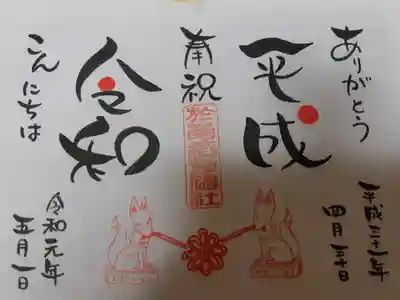 ありがとう
平成
平成三十一年
四月三十日
奉祝
於菊稲荷神社
令和
こんにちは
令和元年
五月一日